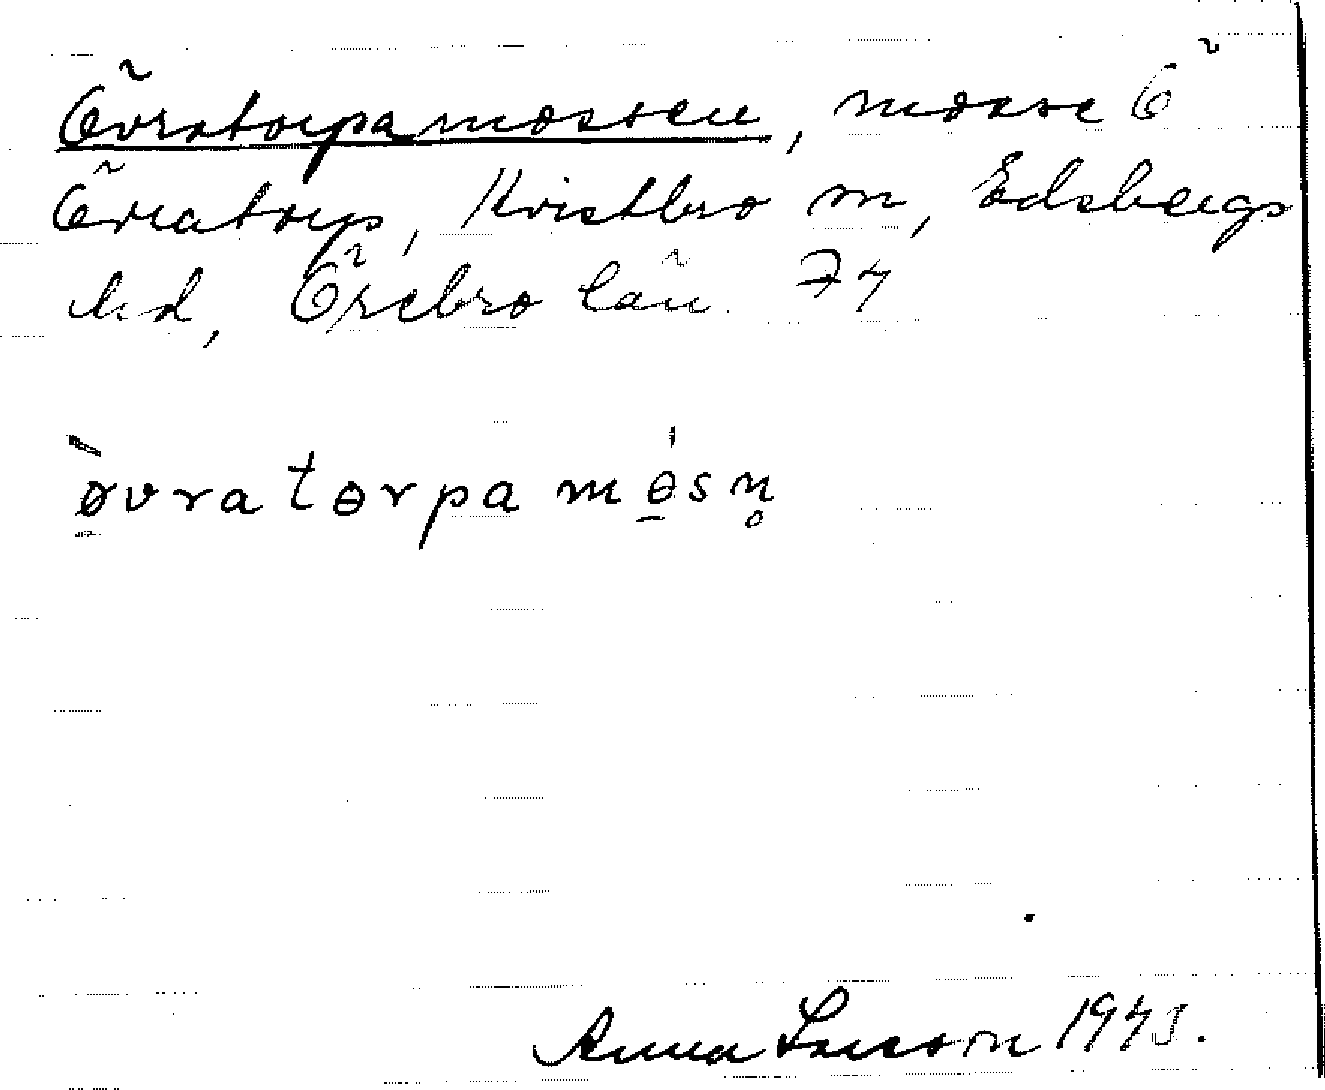 Övratorpamossen, mosse Ö
Övratorp, Kvistbro sn, Edsbergs
hd, Örebro län. 74
øvratɵrpa mɵsn̥
Anna Larsson 1943.